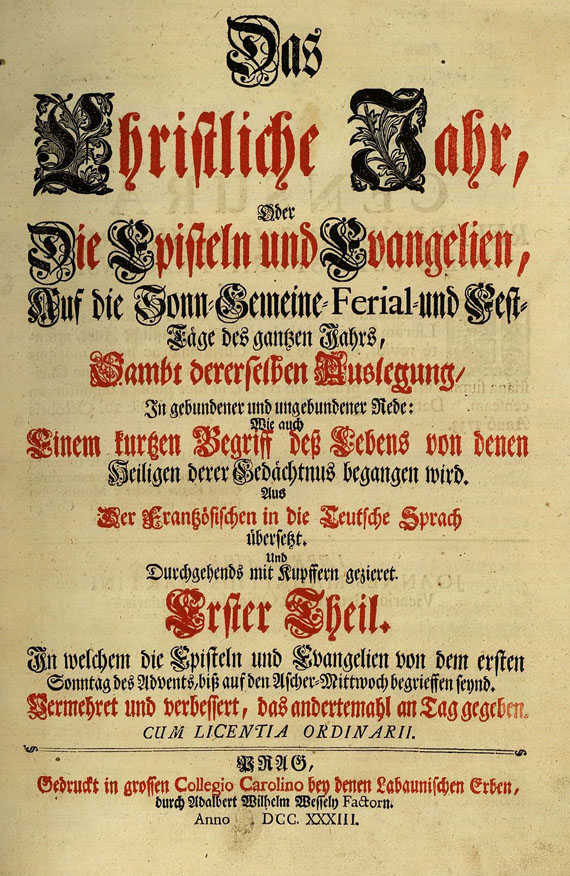 Das
Christliche Jahr,
Oder
Die Episteln und Evangelien,
Auf die Sonn-Gemeine-Ferial-und Fest-
Täge des gantzen Jahrs,
Sambt dererselben Auslegung/
In gebundener und ungebundener Rede:
Wie auch
Einem kurtzen Begriff deß Lebens von denen
Heiligen derer Gedächtnus begangen wird.
Aus
Der Frantzösischen in die Teutsche Sprach
übersetzt.
Und
Durchgehends mit Kupffern gezieret.
Erster Theil.
In welchem die Episteln und Evangelien von dem ersten
Sonntag des Advents, biß auf den Ascher-Mittwoch begrieffen seynd.
Vermehret und verbessert, das andertemahl an Tag gegeben.
CUM LICENTIA ORDINARII.
PRAG,
Gedruckt in grossen Collegio Carolino bey denen Labaunischen Erben,
durch Adalbert Wilhelm Wessely Factorn.
Anno DCC. XXXIII.